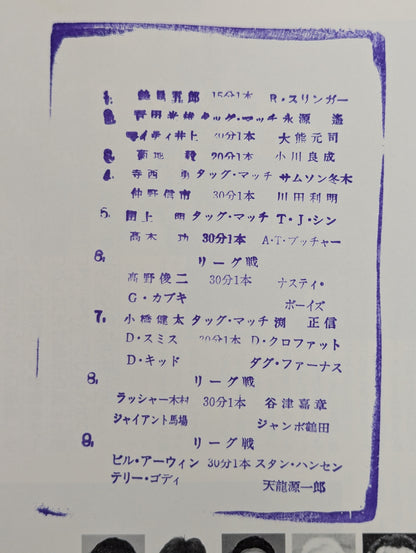 1. 鶴見五郎 15分1本 R・スリンガー
2. 百田光雄 タッグ・マッチ 永源 遙
マイティ井上 20分1本 大熊元司
3. 菊地 毅 20分1本 小川良成
4. 寺西 勇 タッグ・マッチ サムソン冬木
仲野信市 30分1本 川田利明
5. 田上 明 タッグ・マッチ T・J・シン
高木 功 30分1本 A・T・ブッチャー
6. リーグ戦
高野俊二 30分1本 ナスティ・
G・カブキ ボーイズ
7. 小橋健太 タッグ・マッチ 渕 正信
D・スミス 30分1本 D・クロファット
D・キッド ダグ・ファーナス
8. リーグ戦
ラッシャー木村 30分1本 谷津嘉章
ジャイアント馬場 ジャンボ鶴田
9. リーグ戦
ビル・アーウィン 30分1本 スタン・ハンセン
テリー・ゴディ 天龍源一郎